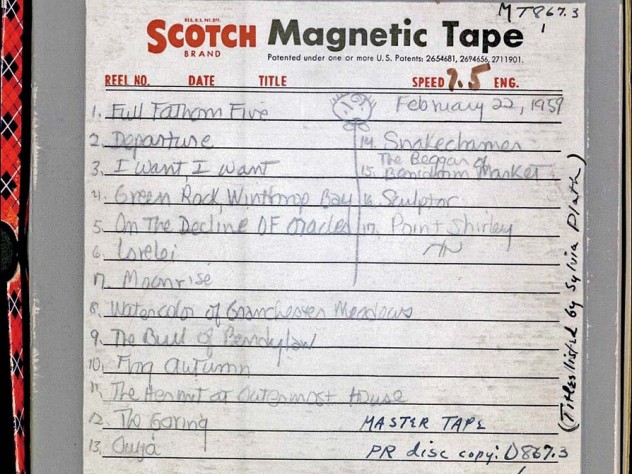 MT867.3
1
REG. U.S. PAT. OFF.
SCOTCH Magnetic Tape
BRAND
Patented under one or more U.S. Patents: 2654681, 2694656, 2711901.
REEL NO. DATE TITLE SPEED 7.5 ENG.
February 22, 1959
1. Full Fathom Five
2. Departure
3. I Want, I Want
4. Green Rock, Winthrop Bay
5. On The Decline Of Oracles
6. Lorelei
7. Moonrise
8. Watercolor of Granchester Meadows
9. The Bull of Bendylaw
10. Frog Autumn
11. The Hermit at Outermost House
12. The Goring
13. Ouija
14. Snakecharmer
15. The Beggars of
Benidorm Market
16. Sculptor
17. Point Shirley
MASTER TAPE
PR disc copy: D867.3
(Titles listed by Sylvia Plath)